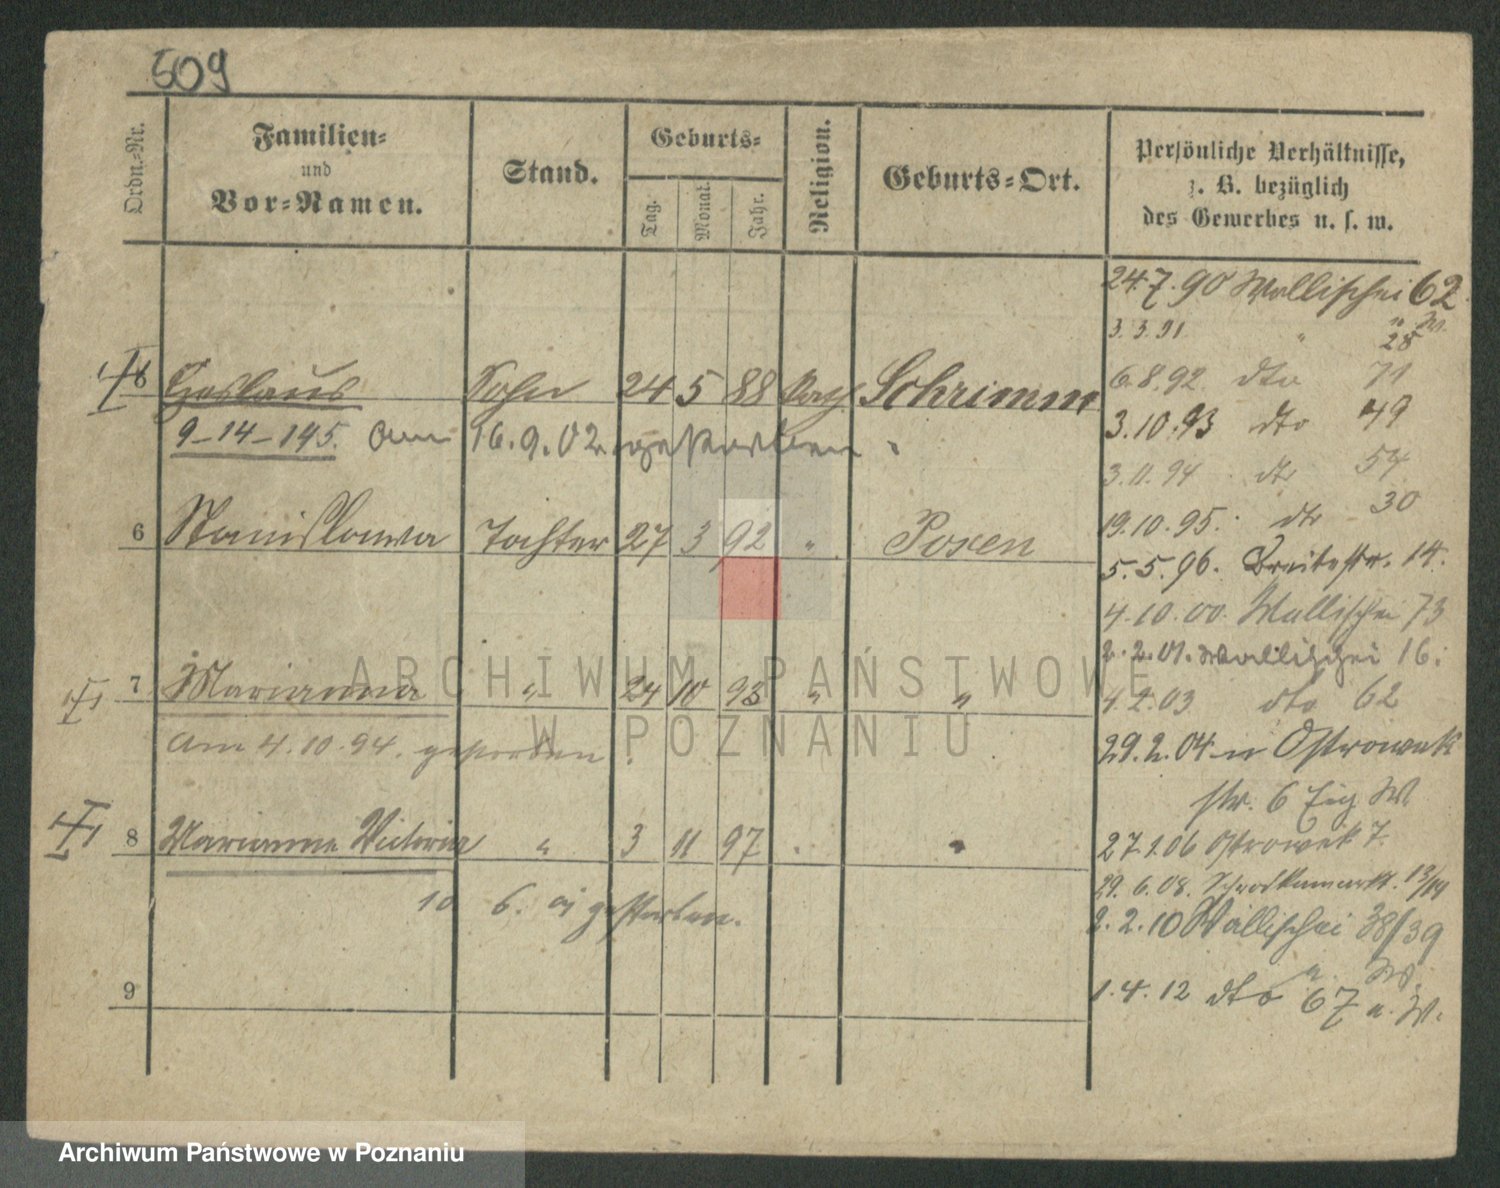 509
Ordn.-Nr.
Familien-
und
Vor-Namen.
Stand.
Geburts-
Tag.
Monat.
Jahr.
Religion.
Geburts-Ort.
Persönliche Verhältnisse,
z. B. bezüglich
des Gewerbes u. s. w.
24.7.90 Wallischei 62
3.3.91 " 28
Sohn 24 5 88 Schrimm
6.8.92. dto 71
9-14-195. Am 16.9.02. gestorben.
3.10.93 dto 49
3.11.94 dto 54
19.10.95. dto 30
6 Stanislawa Tochter 27 3 92 " Posen
5.5.96. Breitestr. 14.
4.10.00. Wallischei 73
2.2.01. Wallischei 16.
7 Marianna " 24 10 93 " "
4.2.03 dto 62
Am 4.10.94. gestorben.
29.2.04 Ostrowek
str. 6
8 Marianna Victoria " 3 11 97 " "
27.1.06 Ostrowek 7.
29.6.08. Schrodkamarkt. 13/14
10 6. gestorben.
2.2.10 Wallischei 38/39
9
1.4.12 dto 67 u. W.
ARCHIWUM PAŃSTWOWE
W POZNANIU
Archiwum Państwowe w Poznaniu